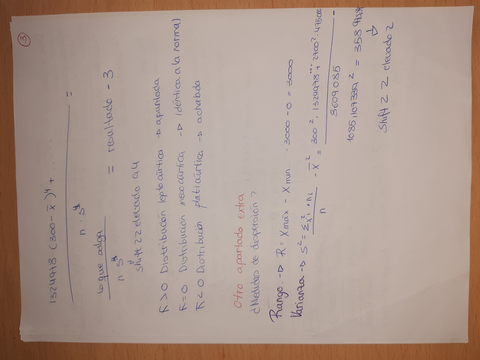 3
1324978 (300 - x̄)⁴ +
=
n · S⁴
lo que salga = resultado - 3
n · S⁴
Shift 2 2 elevado a 4
K > 0 Distribución leptocúrtica → apuntada
K = 0 Distribución mesocúrtica → idéntica a la normal
K < 0 Distribución platicúrtica → achatada
Otro apartado extra
¿Medidas de dispersión?
Rango → R = Xmax - Xmin · 3000 - 0 = 3000
Varianza → S² = Σ xi² · ni - x̄² = 300² · 1324978 + 2700² · 475000
n
3609085
= 3589
Shift 2 2 elevado 2